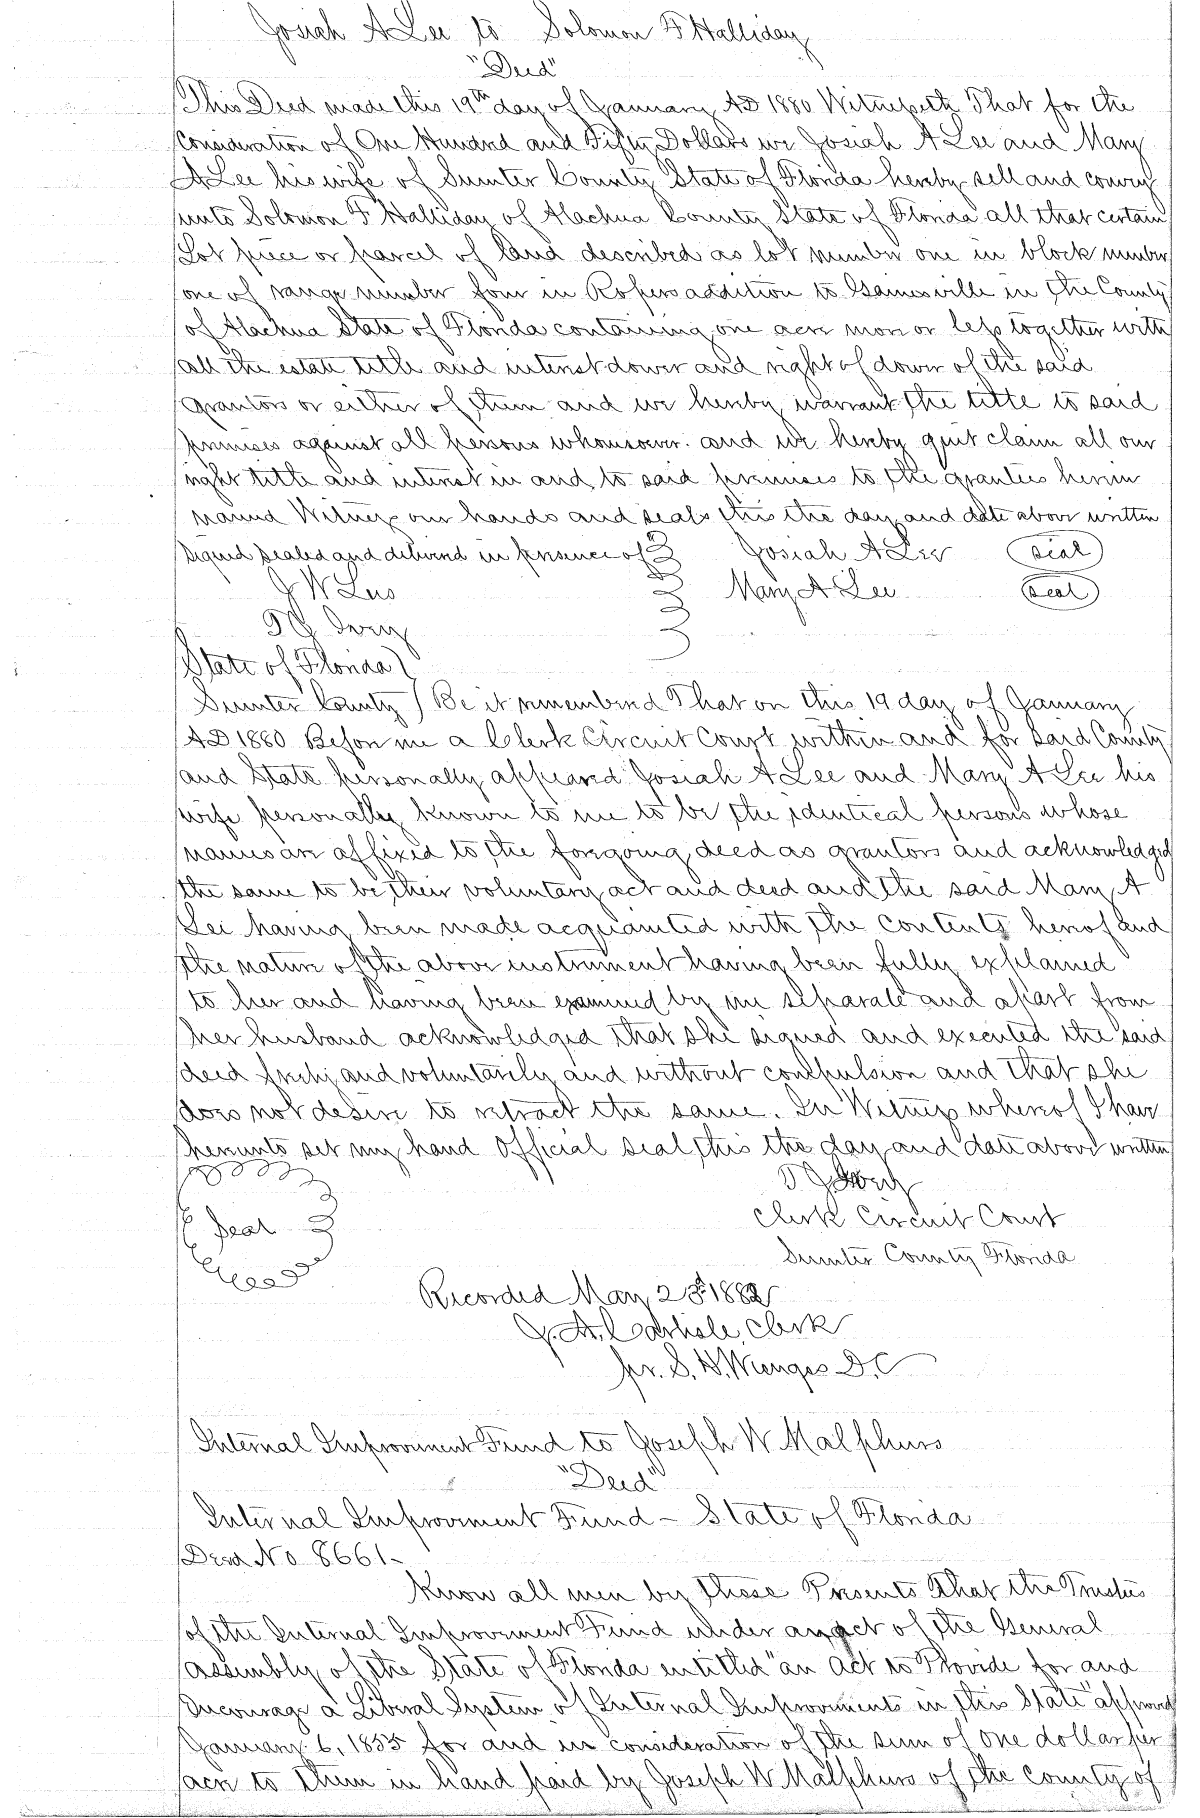 Josiah A Lee to Solomon F Halliday
"Deed"
This Deed made this 19th day of January AD 1880 Witnesseth That for the
consideration of One Hundred and Fifty Dollars we Josiah A Lee and Mary
A Lee his wife of Sumter County State of Florida hereby sell and convey
unto Solomon F Halliday of Alachua County State of Florida all that certain
Lot piece or parcel of land described as lot number one in block number
one of range number four in Ropers addition to Gainesville in the County
of Alachua State of Florida containing one acre more or less together with
all the estate title and interest dower and right of dower of the said
grantors or either of them and we hereby warrant the title to said
premises against all persons whomsoever. and we hereby quit claim all our
right title and interest in and to said premises to the grantees herein
named Witness our hands and seals this the day and date above written
Signed sealed and delivered in presence of Josiah A Lee seal
J W Lee Mary A Lee seal
T G Ivey
State of Florida
Sumter County Be it remembered That on this 19 day of January
AD 1880 Before me a Clerk Circuit Court within and for said County
and State personally appeared Josiah A Lee and Mary A Lee his
wife personally known to me to be the identical persons whose
names are affixed to the foregoing deed as grantors and acknowledged
the same to be their voluntary act and deed and the said Mary A
Lee having been made acquainted with the contents hereof and
the nature of the above instrument having been fully explained
to her and having been examined by me separate and apart from
her husband acknowledged that she signed and executed the said
deed freely and voluntarily and without compulsion and that she
does not desire to retract the same. In Witness whereof I have
hereunto set my hand Official seal this the day and date above written
T G Ivey
Seal Clerk Circuit Court
Sumter County Florida
Recorded May 23d 1882
J. A. Carlisle, Clerk
pr. S. H. Wienges D.C
Internal Improvement Fund to Joseph W Malphurs
"Deed"
Internal Improvement Fund - State of Florida
Deed No 8661-
Know all men by these Presents That the Trustees
of the Internal Improvement Fund under an act of the General
Assembly of the State of Florida entitled "an Act to Provide for and
Encourage a Liberal System of Internal Improvements in this State" approved
January 6, 1855 for and in consideration of the sum of one dollar per
acre to them in hand paid by Joseph W Malphurs of the County of